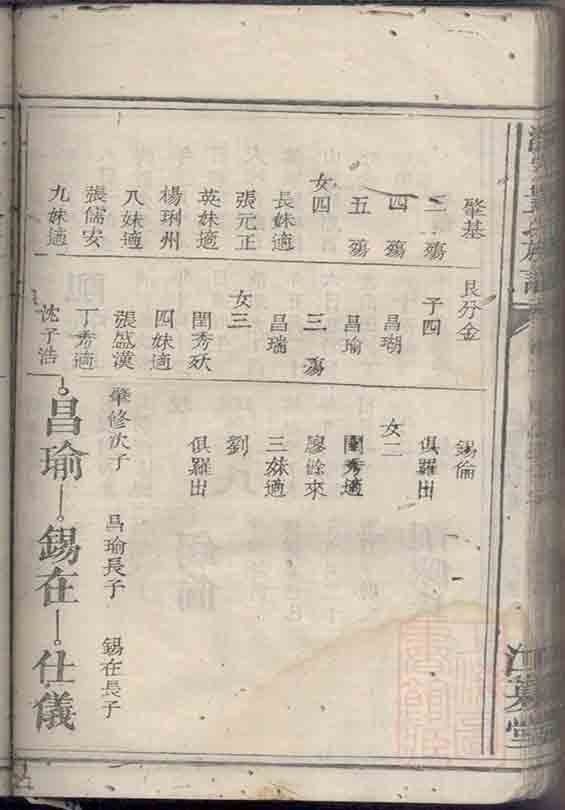 肇基
三殤
四殤
五殤
女四
長妹適
張元正
英妹適
楊琍州
八妹適
張儒安
九妹適
艮分金
子四
昌瑚
昌瑜
三殤
昌瑞
女三
閏秀殀
四妹適
張盛漢
丁秀適
沈予浩
錫倫
俱羅出
女二
秀適
廖餘來
三妹適
劉
俱羅出
肇修次子 昌瑜長子 錫在長子
昌瑜 錫在 仕儀
江夏堂